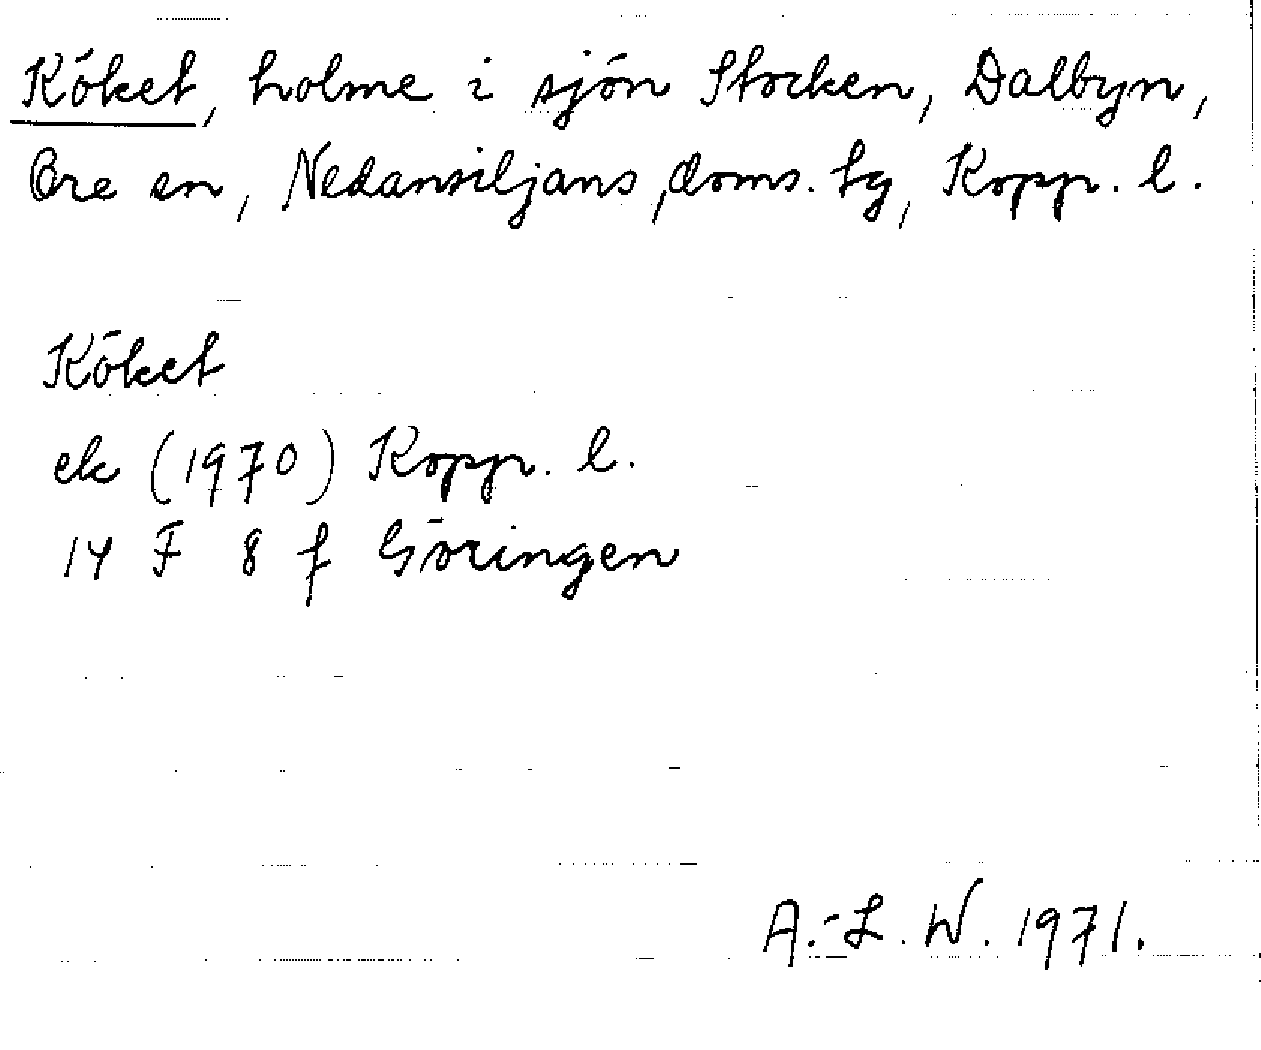 Köket, holme i sjön Stocken, Dalbyn,
Ore sn, Nedansiljans doms. tg, Kopp. l.
Köket
ek (1970) Kopp. l.
14 F 8 f Göringen
A.-L. W. 1971.